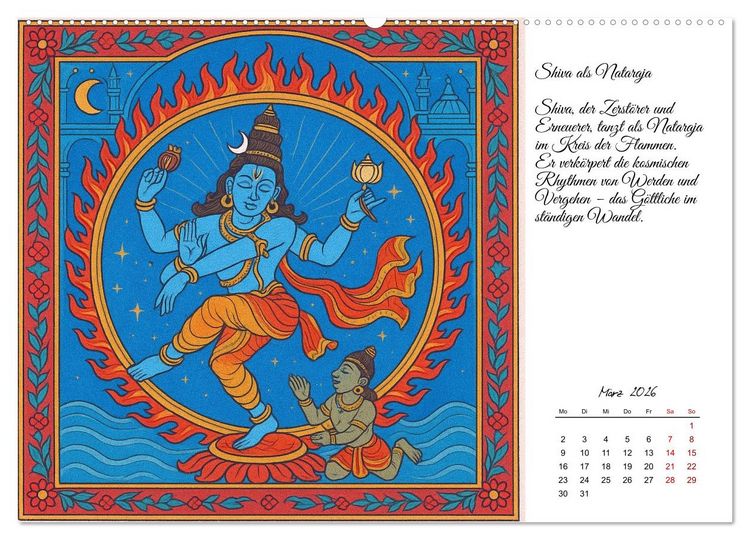 Shiva als Nataraja
Shiva, der Zerstörer und
Erneuerer, tanzt als Nataraja
im Kreis der Flammen.
Er verkörpert die kosmischen
Rhythmen von Werden und
Vergehen – das Göttliche im
ständigen Wandel.
März 2026
Mo Di Mi Do Fr Sa So
1
2 3 4 5 6 7 8
9 10 11 12 13 14 15
16 17 18 19 20 21 22
23 24 25 26 27 28 29
30 31